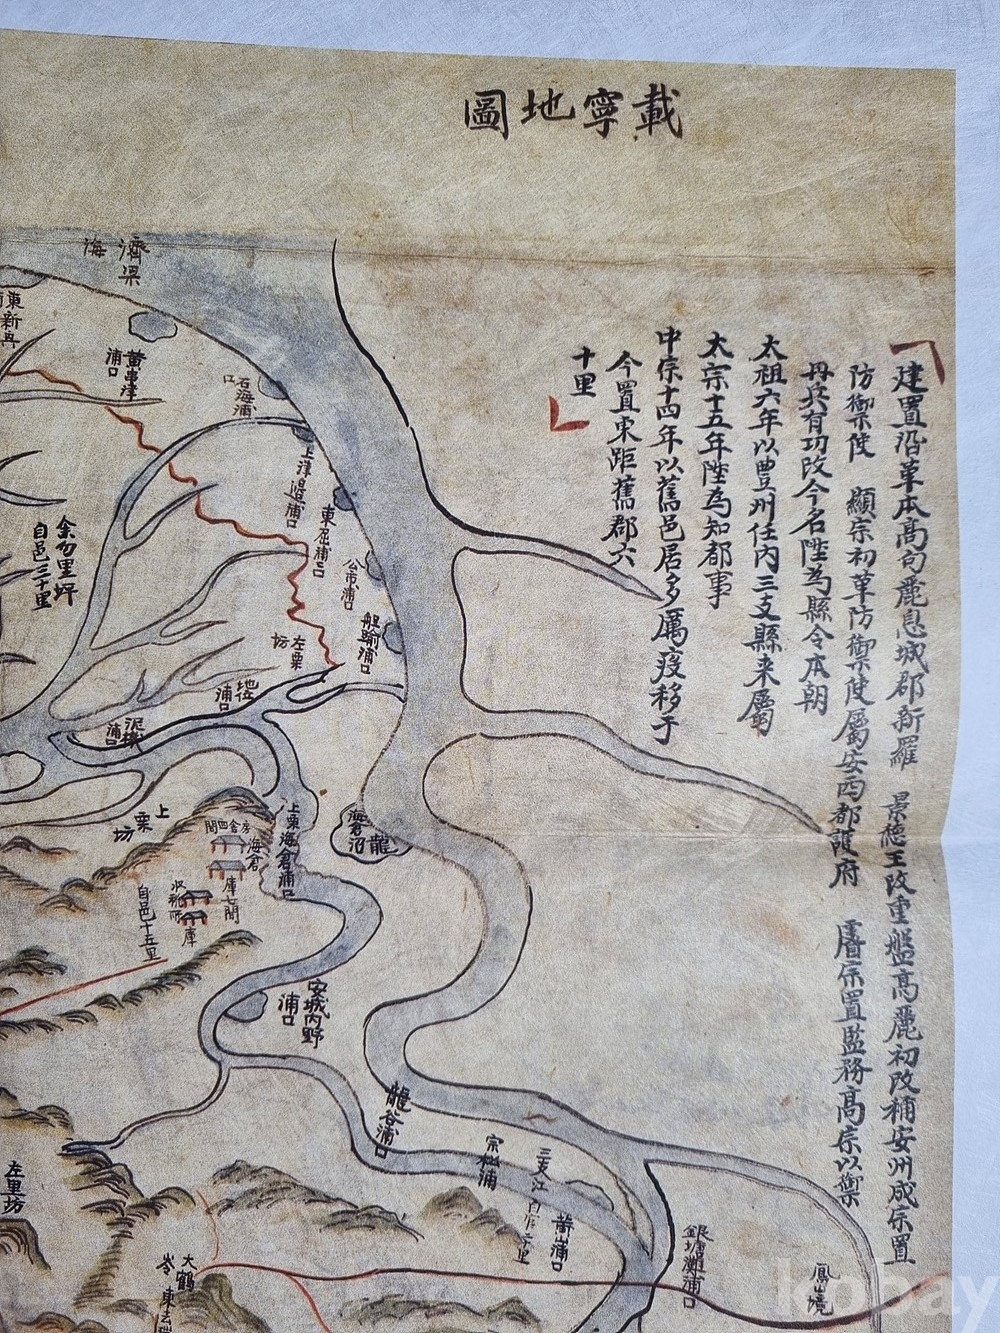 載寧地圖
建置沿革本高句麗息城郡新羅　景德王改重盤高麗初改稱安州成宗置
防禦使　顯宗初革防禦使屬安西都護府　睿宗置監務高宗以禦
丹兵有功改今名陞為縣令本朝
太祖六年以豊州任內三支縣来屬
太宗十五年陞為知郡事
中宗十四年以舊邑居多厲疫移于
今置東距舊郡六
十里
濟梁
海
東新再
黃串津
浦口
石海浦
口
上津邊浦口
東屈浦口
公市浦口
余勿里坪
自邑三十里
左栗
坊
浦口
浦口
上栗
坊
房舍四間
海倉
庫七間
庫
自邑十五里
上東海倉浦口
龍
海倉沼
安城內野
浦口
龍谷浦口
三支江
銀塘灘浦口
鳳山境
左里坊
大鶴
岺
東
kobay